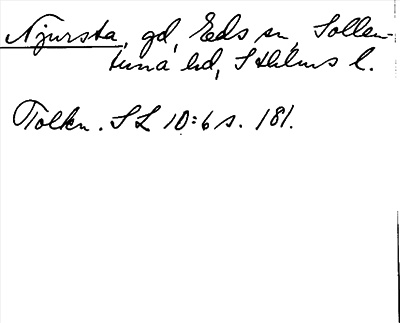 Njursta, gd, Eds sn, Sollen-
tuna hd, Sthlms l.
Tolkn. SL 10:6 s. 181.